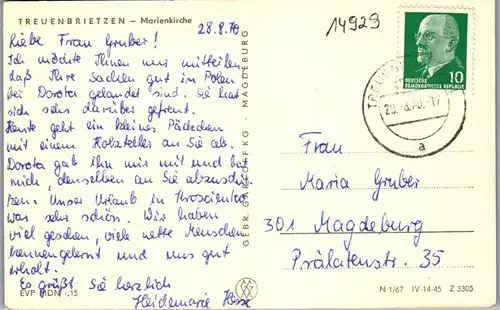 TREUENBRIETZEN – Marienkirche
28.8.70
Liebe Frau Gruber!
Ich möchte Ihnen nur mitteilen
daß Ihre Sachen gut in Polen
bei Dorota gelandet sind. Sie hat
sich sehr darüber gefreut.
Heute geht ein kleines Päckchen
mit einem Holzteller an Sie ab.
Dorota gab ihn mir mit und bat
mich, denselben an Sie abzuschik-
ken. Unser Urlaub in
war sehr schön. Wir haben
viel gesehen, viele nette Menschen
kennengelernt und uns gut
erholt.
Es grüßt Sie herzlich
Heidemarie
EVP MDN -.15
GEBR. GARLOFF KG · MAGDEBURG
14929
10
DEUTSCHE
DEMOKRATISCHE REPUBLIK
29.8.70.-17
a
Frau
Maria Gruber
301 Magdeburg
Prälatenstr. 35
N 1/67 IV-14-45 Z 3305